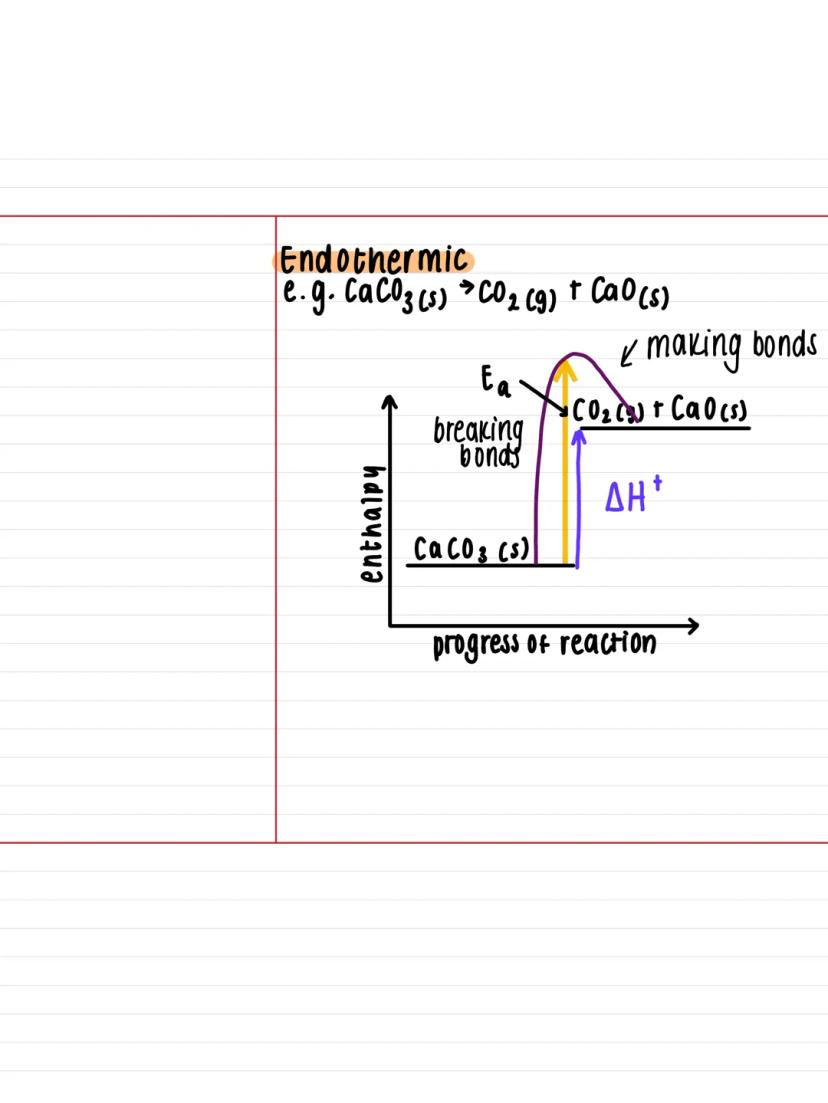 Endothermic
e.g. CaCO₃(s) → CO₂(g) + CaO(s)
making bonds
Eₐ
CO₂(g) + CaO(s)
breaking
bonds
ΔH⁺
enthalpy
CaCO₃(s)
progress of reaction